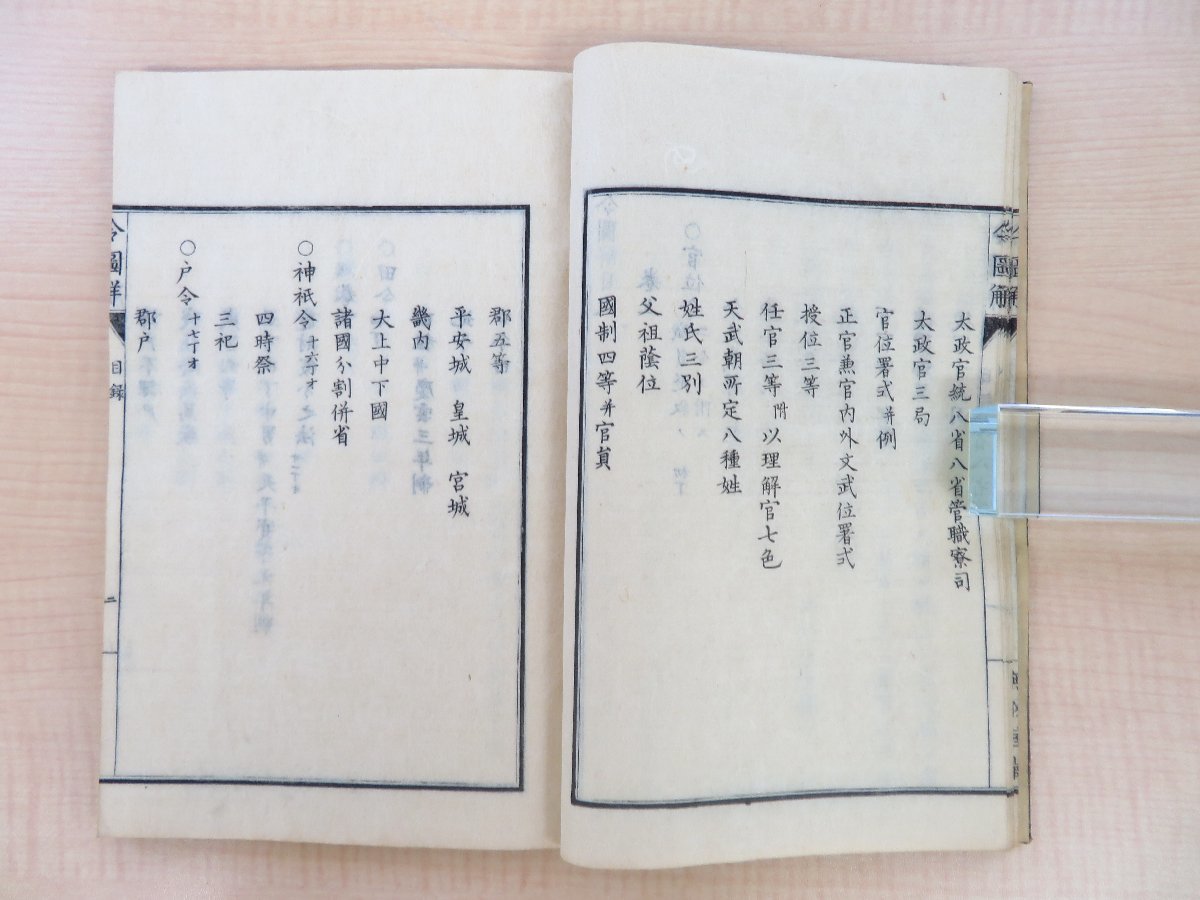 令圖解
太政官統八省八省管職寮司
太政官三局
官位署式并例
正官兼官内外文武位署式
授位三等
任官三等附以理解官七色
天武朝所定八種姓
姓氏三別
父祖蔭位
國制四等并官員
郡五等
平安城 皇城 宮城
畿内
大上中下國
諸國分割併省
○神祇令十六丁オ
四時祭
三祀
○戸令十七丁オ
郡戸
令圖解
目録
二